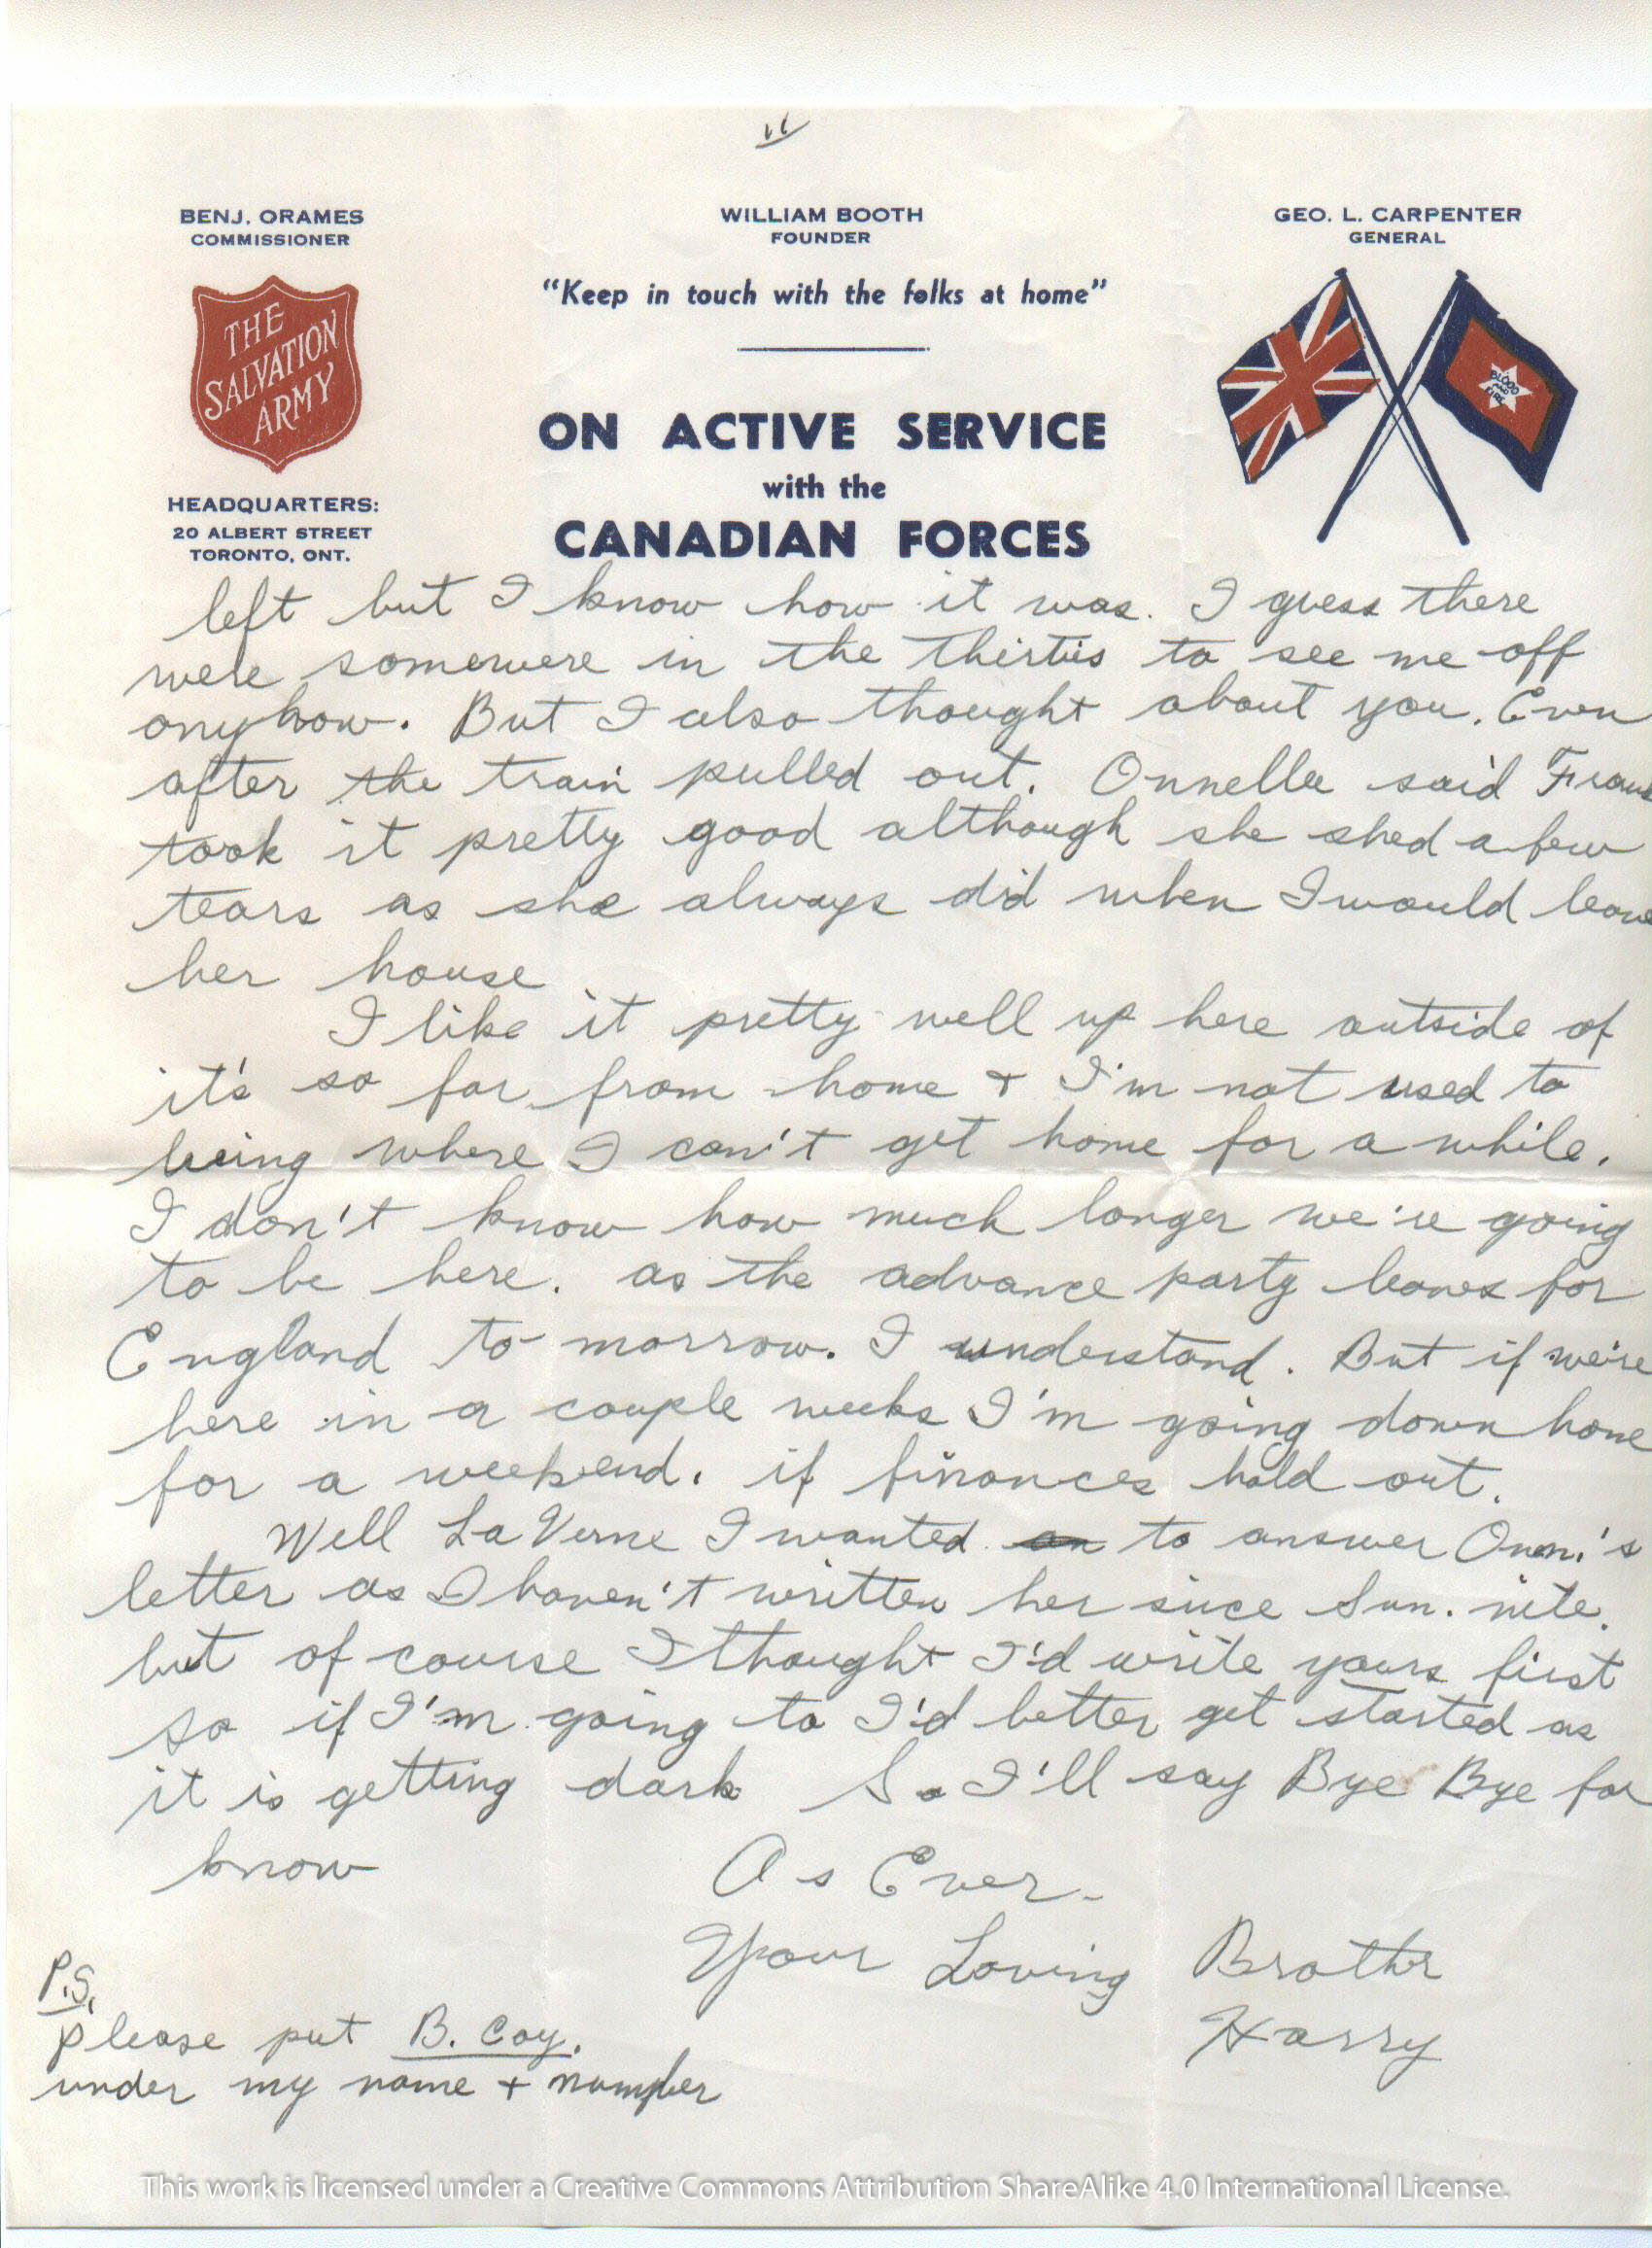 11
BENJ. ORAMES
COMMISSIONER
WILLIAM BOOTH
FOUNDER
GEO. L. CARPENTER
GENERAL
"Keep in touch with the folks at home"
THE
SALVATION
ARMY
BLOOD
AND
FIRE
ON ACTIVE SERVICE
with the
CANADIAN FORCES
HEADQUARTERS:
20 ALBERT STREET
TORONTO, ONT.
left but I know how it was. I guess there
were somewere in the thirties to see me off
anyhow. But I also thought about you. Even
after the train pulled out. Onnella said
took it pretty good although she shed a few
tears as she always did when I would leave
her house
I like it pretty well up here outside of
it's so far from home + I'm not used to
being where I can't get home for a while.
I don't know how much longer we're going
to be here. as the advance party leaves for
England to-morrow. I understand. But if we're
here in a couple weeks I'm going down home
for a weekend. if finances hold out.
Well LaVerne I wanted an to answer Onni's
letter as I haven't written her since Sun. nite.
but of course I thought I'd write yours first
so if I'm going to I'd better get started as
it is getting dark So I'll say Bye Bye for
know
As Ever-
Your Loving Brother
Harry
P.S.
please put B. Coy.
under my name + number
This work is licensed under a Creative Commons Attribution ShareAlike 4.0 International License.